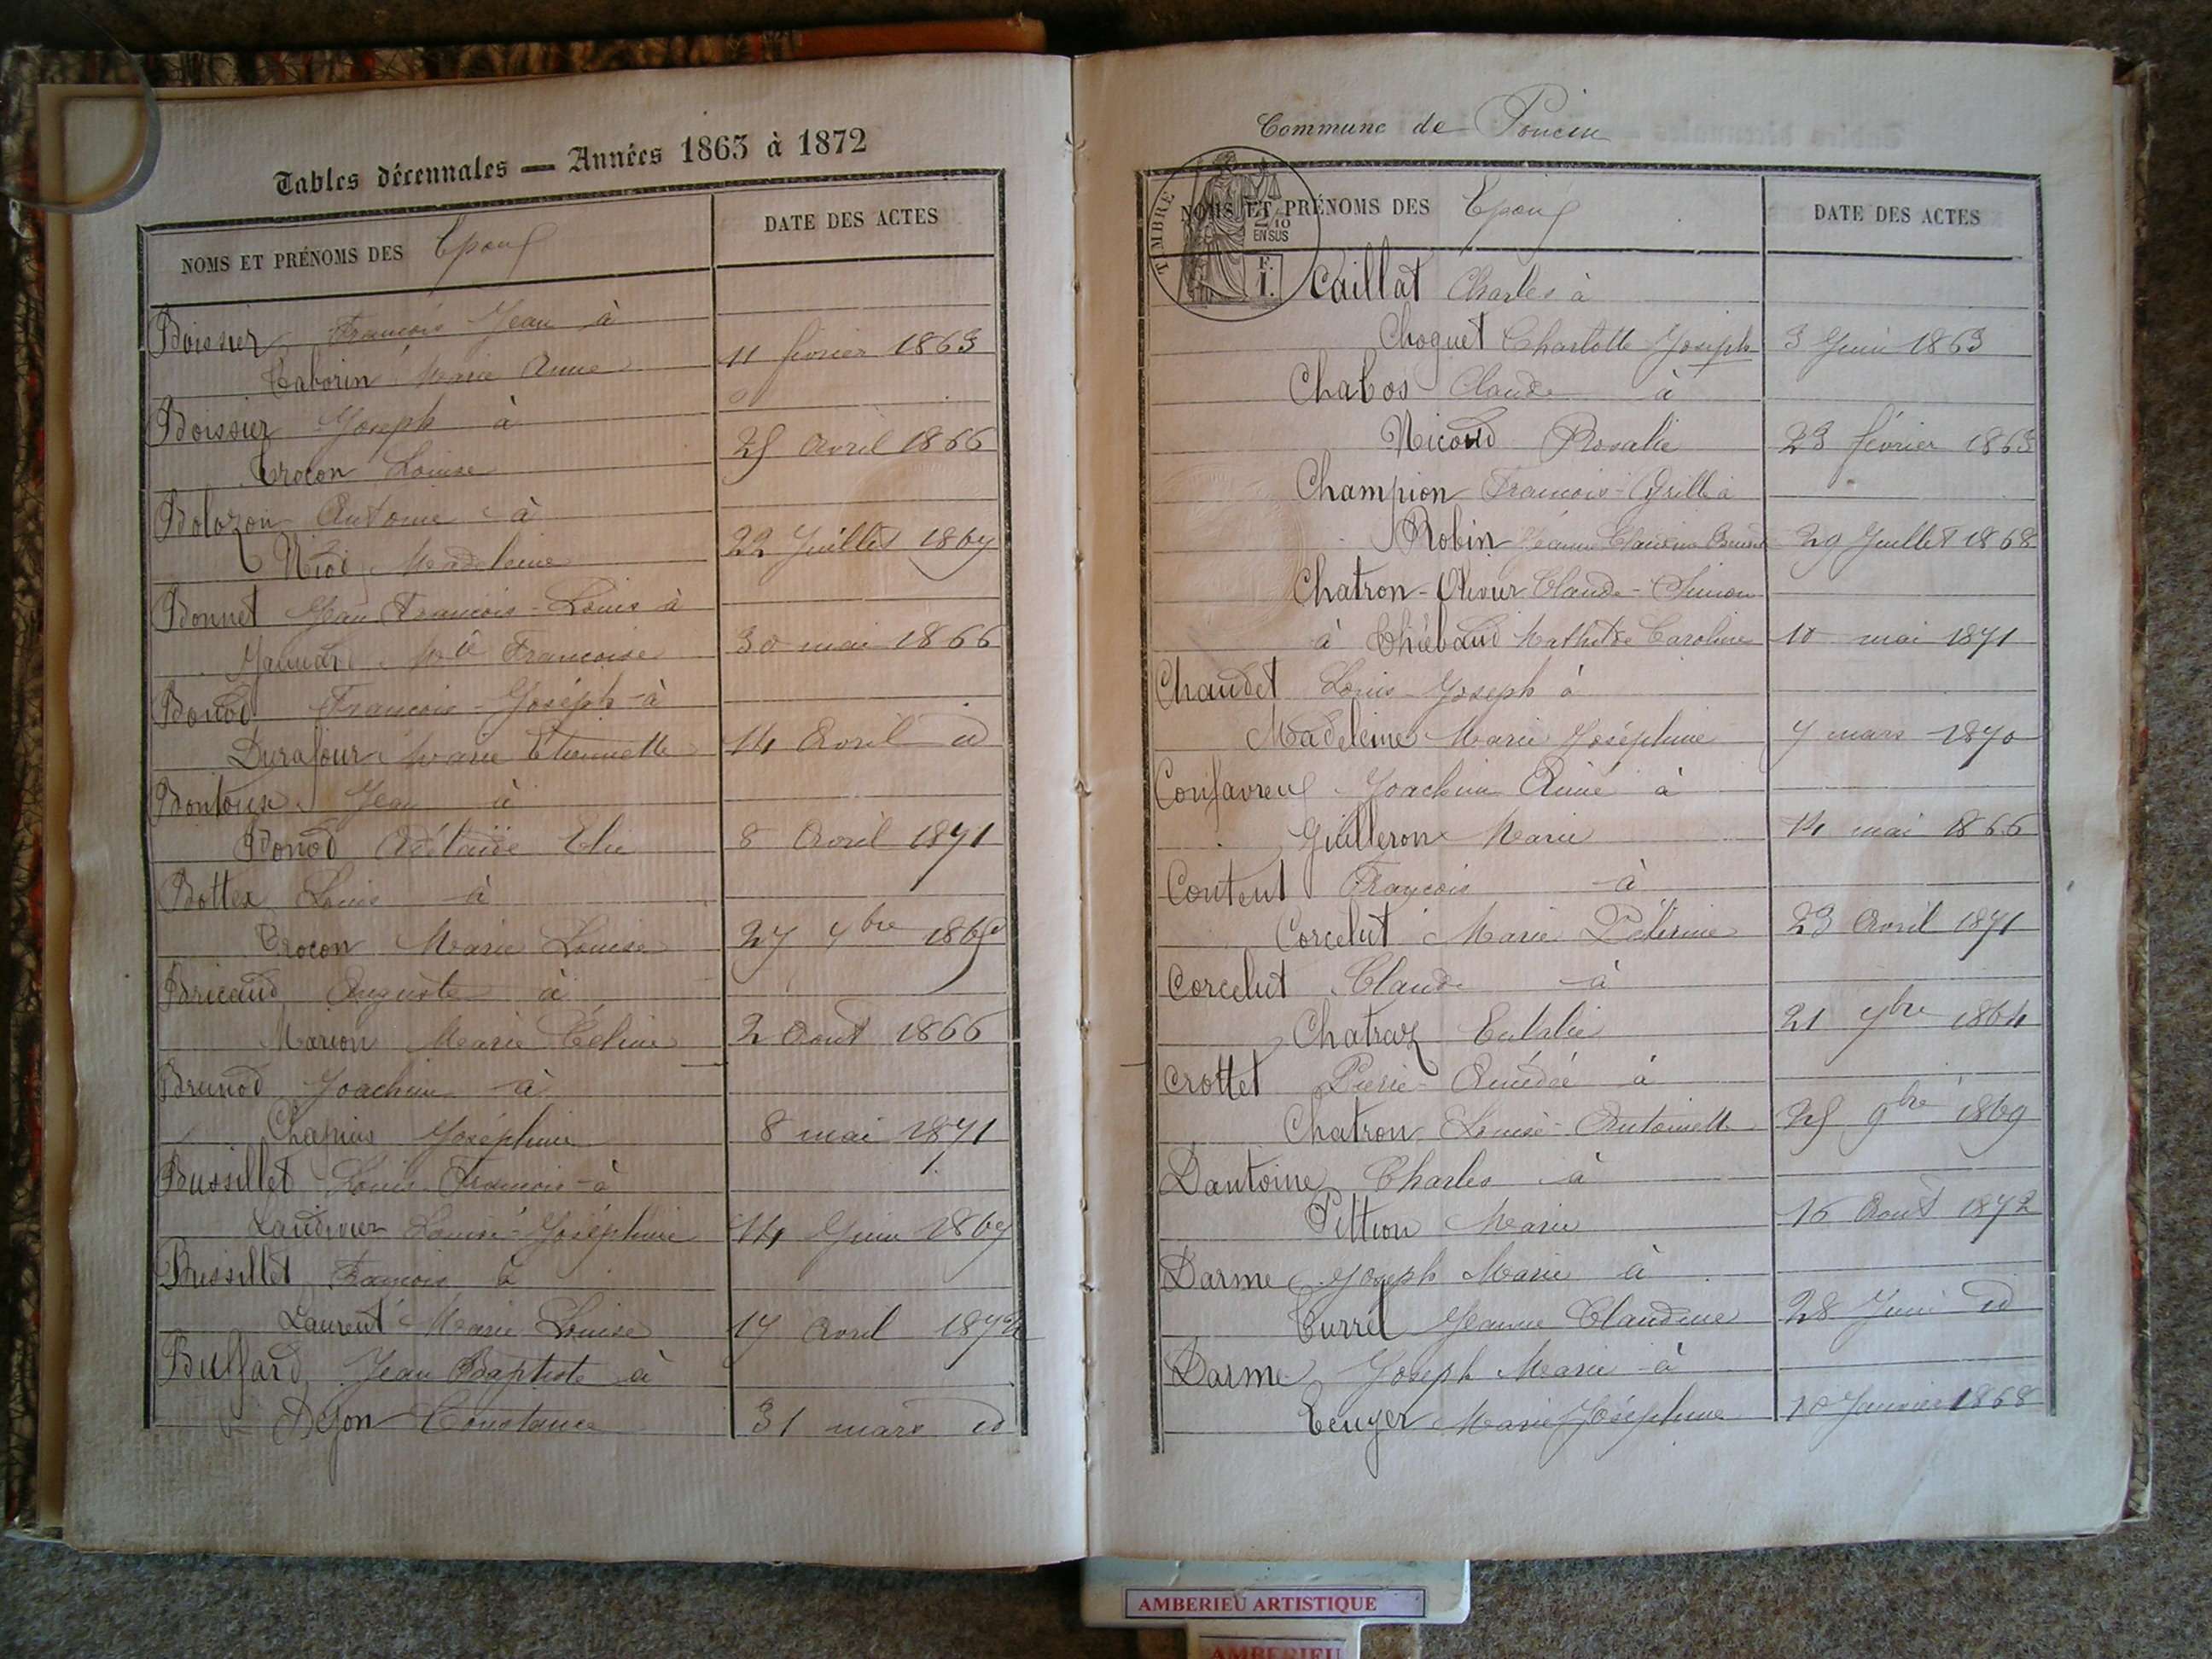 Tables décennales — Années 1863 à 1872
NOMS ET PRÉNOMS DES Epoux
DATE DES ACTES
Boissier François Jean à
Taborin Marie Anne 11 février 1863
Boissier Joseph à
Trocon Louise 25 Avril 1866
Bolozon Antoine à
Niod Madeleine 22 Juillet 1867
Bonnet Jean François-Louis à
Mie Françoise 30 mai 1866
Bonod François-Joseph à
Durafour Marie Etiennette 14 Avril id
Bontoux Jean à
Bonod Adélaïde Elie 8 Avril 1871
Bottex Louis à
Trocon Marie Louise 27 7bre
Bricaud Auguste à
Marion Marie Céline 2 Aout 1866
Brunod Joachim à
Chapuis Joséphine 8 mai 1871
Bussillet Louis François à
Landivier Louise-Joséphine 14 Juin 1867
Bussillet François à
Laurent Marie Louise 17 Avril 1872
Buffard Jean Baptiste à
Dejon Constance 31 mars id
Commune de Poncin
NOMS ET PRÉNOMS DES Epoux
DATE DES ACTES
TIMBRE
2/10
EN SUS
F.
1.
Caillat Charles à
Choquet Charlotte Joseph 3 Juin 1863
Chabos Claude à
Nicoud Rosalie 23 février 1863
Champion François-Cyrille à
Robin Jeanne Claudine 29 Juillet 1868
Chatron-Olivier Claude-Simon
à Thiébaud Mathilde Caroline 10 mai 1871
Chaudet Louis-Joseph à
Madeleine Marie Joséphine 7 mars 1870
Confavreux Joachim Aimé à
Guilleron Marie 14 mai 1866
Content François à
Corcelut Marie Pélerine 23 Avril 1871
Corcelut Claude à
Chatraz Eulalie 21 7bre 1864
Crottet Pierre-Amédée à
Chatron Louise-Antoinette 25 9bre 1869
Dantoine Charles à
Pittion Marie 16 Aout 1872
Darme Joseph Marie à
Currel Jeanne Claudine 28 Juin id
Darme Joseph Marie à
Tenger Marie Joséphine 10 Janvier 1868
AMBERIEU ARTISTIQUE
AMBERIEU